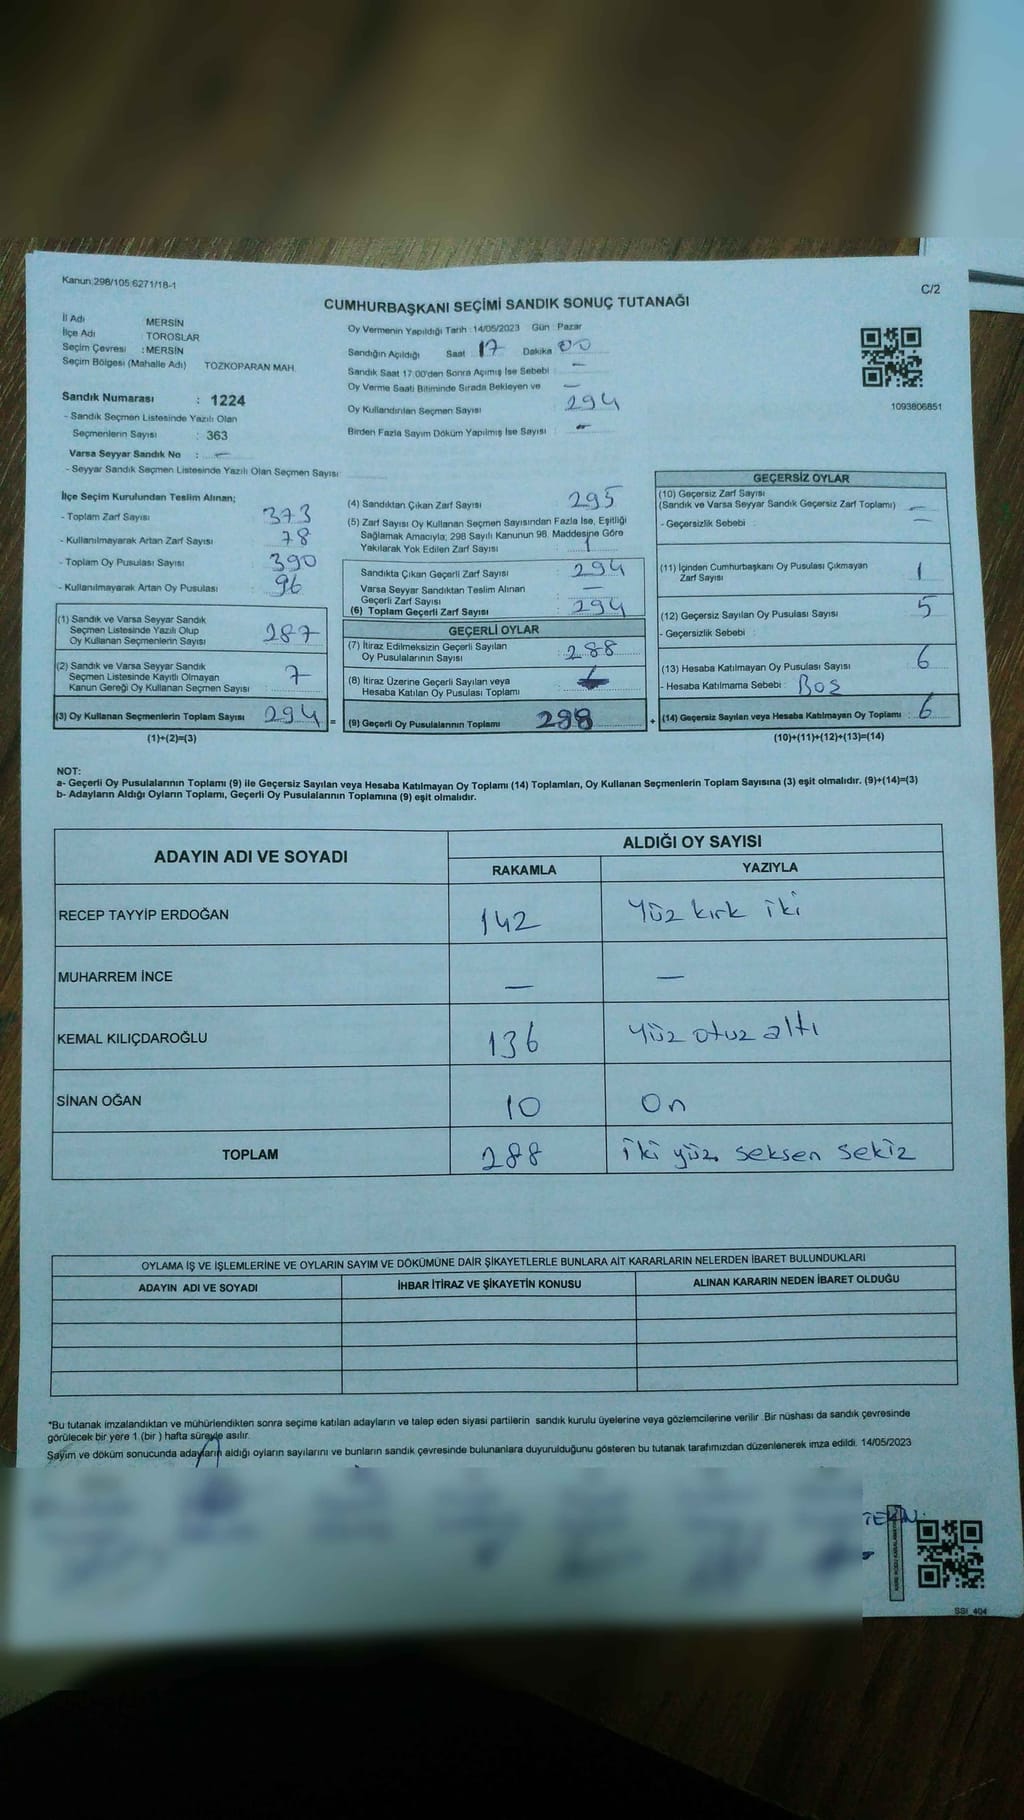 Kanun:298/105.6271/18-1
C/2
CUMHURBAŞKANI SEÇİMİ SANDIK SONUÇ TUTANAĞI
İl Adı MERSİN
İlçe Adı TOROSLAR
Seçim Çevresi : MERSİN
Seçim Bölgesi (Mahalle Adı) TOZKOPARAN MAH.
Sandık Numarası : 1224
- Sandık Seçmen Listesinde Yazılı Olan
Seçmenlerin Sayısı : 363
Varsa Seyyar Sandık No : —
- Seyyar Sandık Seçmen Listesinde Yazılı Olan Seçmen Sayısı
Oy Vermenin Yapıldığı Tarih : 14/05/2023 Gün : Pazar
Sandığın Açıldığı Saat : 17 Dakika : 00
Sandık Saat 17:00'den Sonra Açımış İse Sebebi : —
Oy Verme Saati Bitiminde Sırada Bekleyen ve —
Oy Kullandırılan Seçmen Sayısı 294
Birden Fazla Sayım Döküm Yapılmış İse Sayısı : —
1093806851
İlçe Seçim Kurulundan Teslim Alınan;
- Toplam Zarf Sayısı : 373
- Kullanılmayarak Artan Zarf Sayısı : 78
- Toplam Oy Pusulası Sayısı : 390
- Kullanılmayarak Artan Oy Pusulası : 96
(1) Sandık ve Varsa Seyyar Sandık
Seçmen Listesinde Yazılı Olup
Oy Kullanan Seçmenlerin Sayısı : 287
(2) Sandık ve Varsa Seyyar Sandık
Seçmen Listesinde Kayıtlı Olmayan
Kanun Gereği Oy Kullanan Seçmen Sayısı : 7
(3) Oy Kullanan Seçmenlerin Toplam Sayısı 294 =
(1)+(2)=(3)
(4) Sandıktan Çıkan Zarf Sayısı : 295
(5) Zarf Sayısı Oy Kullanan Seçmen Sayısından Fazla İse, Eşitliği
Sağlamak Amacıyla; 298 Sayılı Kanunun 98. Maddesine Göre
Yakılarak Yok Edilen Zarf Sayısı : 1
Sandıkta Çıkan Geçerli Zarf Sayısı : 294
Varsa Seyyar Sandıktan Teslim Alınan
Geçerli Zarf Sayısı : —
(6) Toplam Geçerli Zarf Sayısı : 294
GEÇERLİ OYLAR
(7) İtiraz Edilmeksizin Geçerli Sayılan
Oy Pusulalarının Sayısı : 288
(8) İtiraz Üzerine Geçerli Sayılan veya
Hesaba Katılan Oy Pusulası Toplamı :
(9) Geçerli Oy Pusulalarının Toplamı : 288 +
GEÇERSİZ OYLAR
(10) Geçersiz Zarf Sayısı
(Sandık ve Varsa Seyyar Sandık Geçersiz Zarf Toplamı) : —
- Geçersizlik Sebebi : —
(11) İçinden Cumhurbaşkanı Oy Pusulası Çıkmayan
Zarf Sayısı : 1
(12) Geçersiz Sayılan Oy Pusulası Sayısı : 5
- Geçersizlik Sebebi :
(13) Hesaba Katılmayan Oy Pusulası Sayısı : 6
- Hesaba Katılmama Sebebi : Boş
(14) Geçersiz Sayılan veya Hesaba Katılmayan Oy Toplamı : 6
(10)+(11)+(12)+(13)=(14)
NOT:
a- Geçerli Oy Pusulalarının Toplamı (9) ile Geçersiz Sayılan veya Hesaba Katılmayan Oy Toplamı (14) Toplamları, Oy Kullanan Seçmenlerin Toplam Sayısına (3) eşit olmalıdır. (9)+(14)=(3)
b- Adayların Aldığı Oyların Toplamı, Geçerli Oy Pusulalarının Toplamına (9) eşit olmalıdır.
ADAYIN ADI VE SOYADI
ALDIĞI OY SAYISI
RAKAMLA YAZIYLA
RECEP TAYYİP ERDOĞAN 142 Yüz kırk iki
MUHARREM İNCE — —
KEMAL KILIÇDAROĞLU 136 Yüz otuz altı
SİNAN OĞAN 10 On
TOPLAM 288 iki yüz seksen sekiz
OYLAMA İŞ VE İŞLEMLERİNE VE OYLARIN SAYIM VE DÖKÜMÜNE DAİR ŞİKAYETLERLE BUNLARA AİT KARARLARIN NELERDEN İBARET BULUNDUKLARI
ADAYIN ADI VE SOYADI İHBAR İTİRAZ VE ŞİKAYETİN KONUSU ALINAN KARARIN NEDEN İBARET OLDUĞU
*Bu tutanak imzalandıktan ve mühürlendikten sonra seçime katılan adayların ve talep eden siyasi partilerin sandık kurulu üyelerine veya gözlemcilerine verilir .Bir nüshası da sandık çevresinde
görülecek bir yere 1 (bir ) hafta süreyle asılır.
Sayım ve döküm sonucunda adayların aldığı oyların sayılarını ve bunların sandık çevresinde bulunanlara duyurulduğunu gösteren bu tutanak tarafımızdan düzenlenerek imza edildi. 14/05/2023
SSİ_404